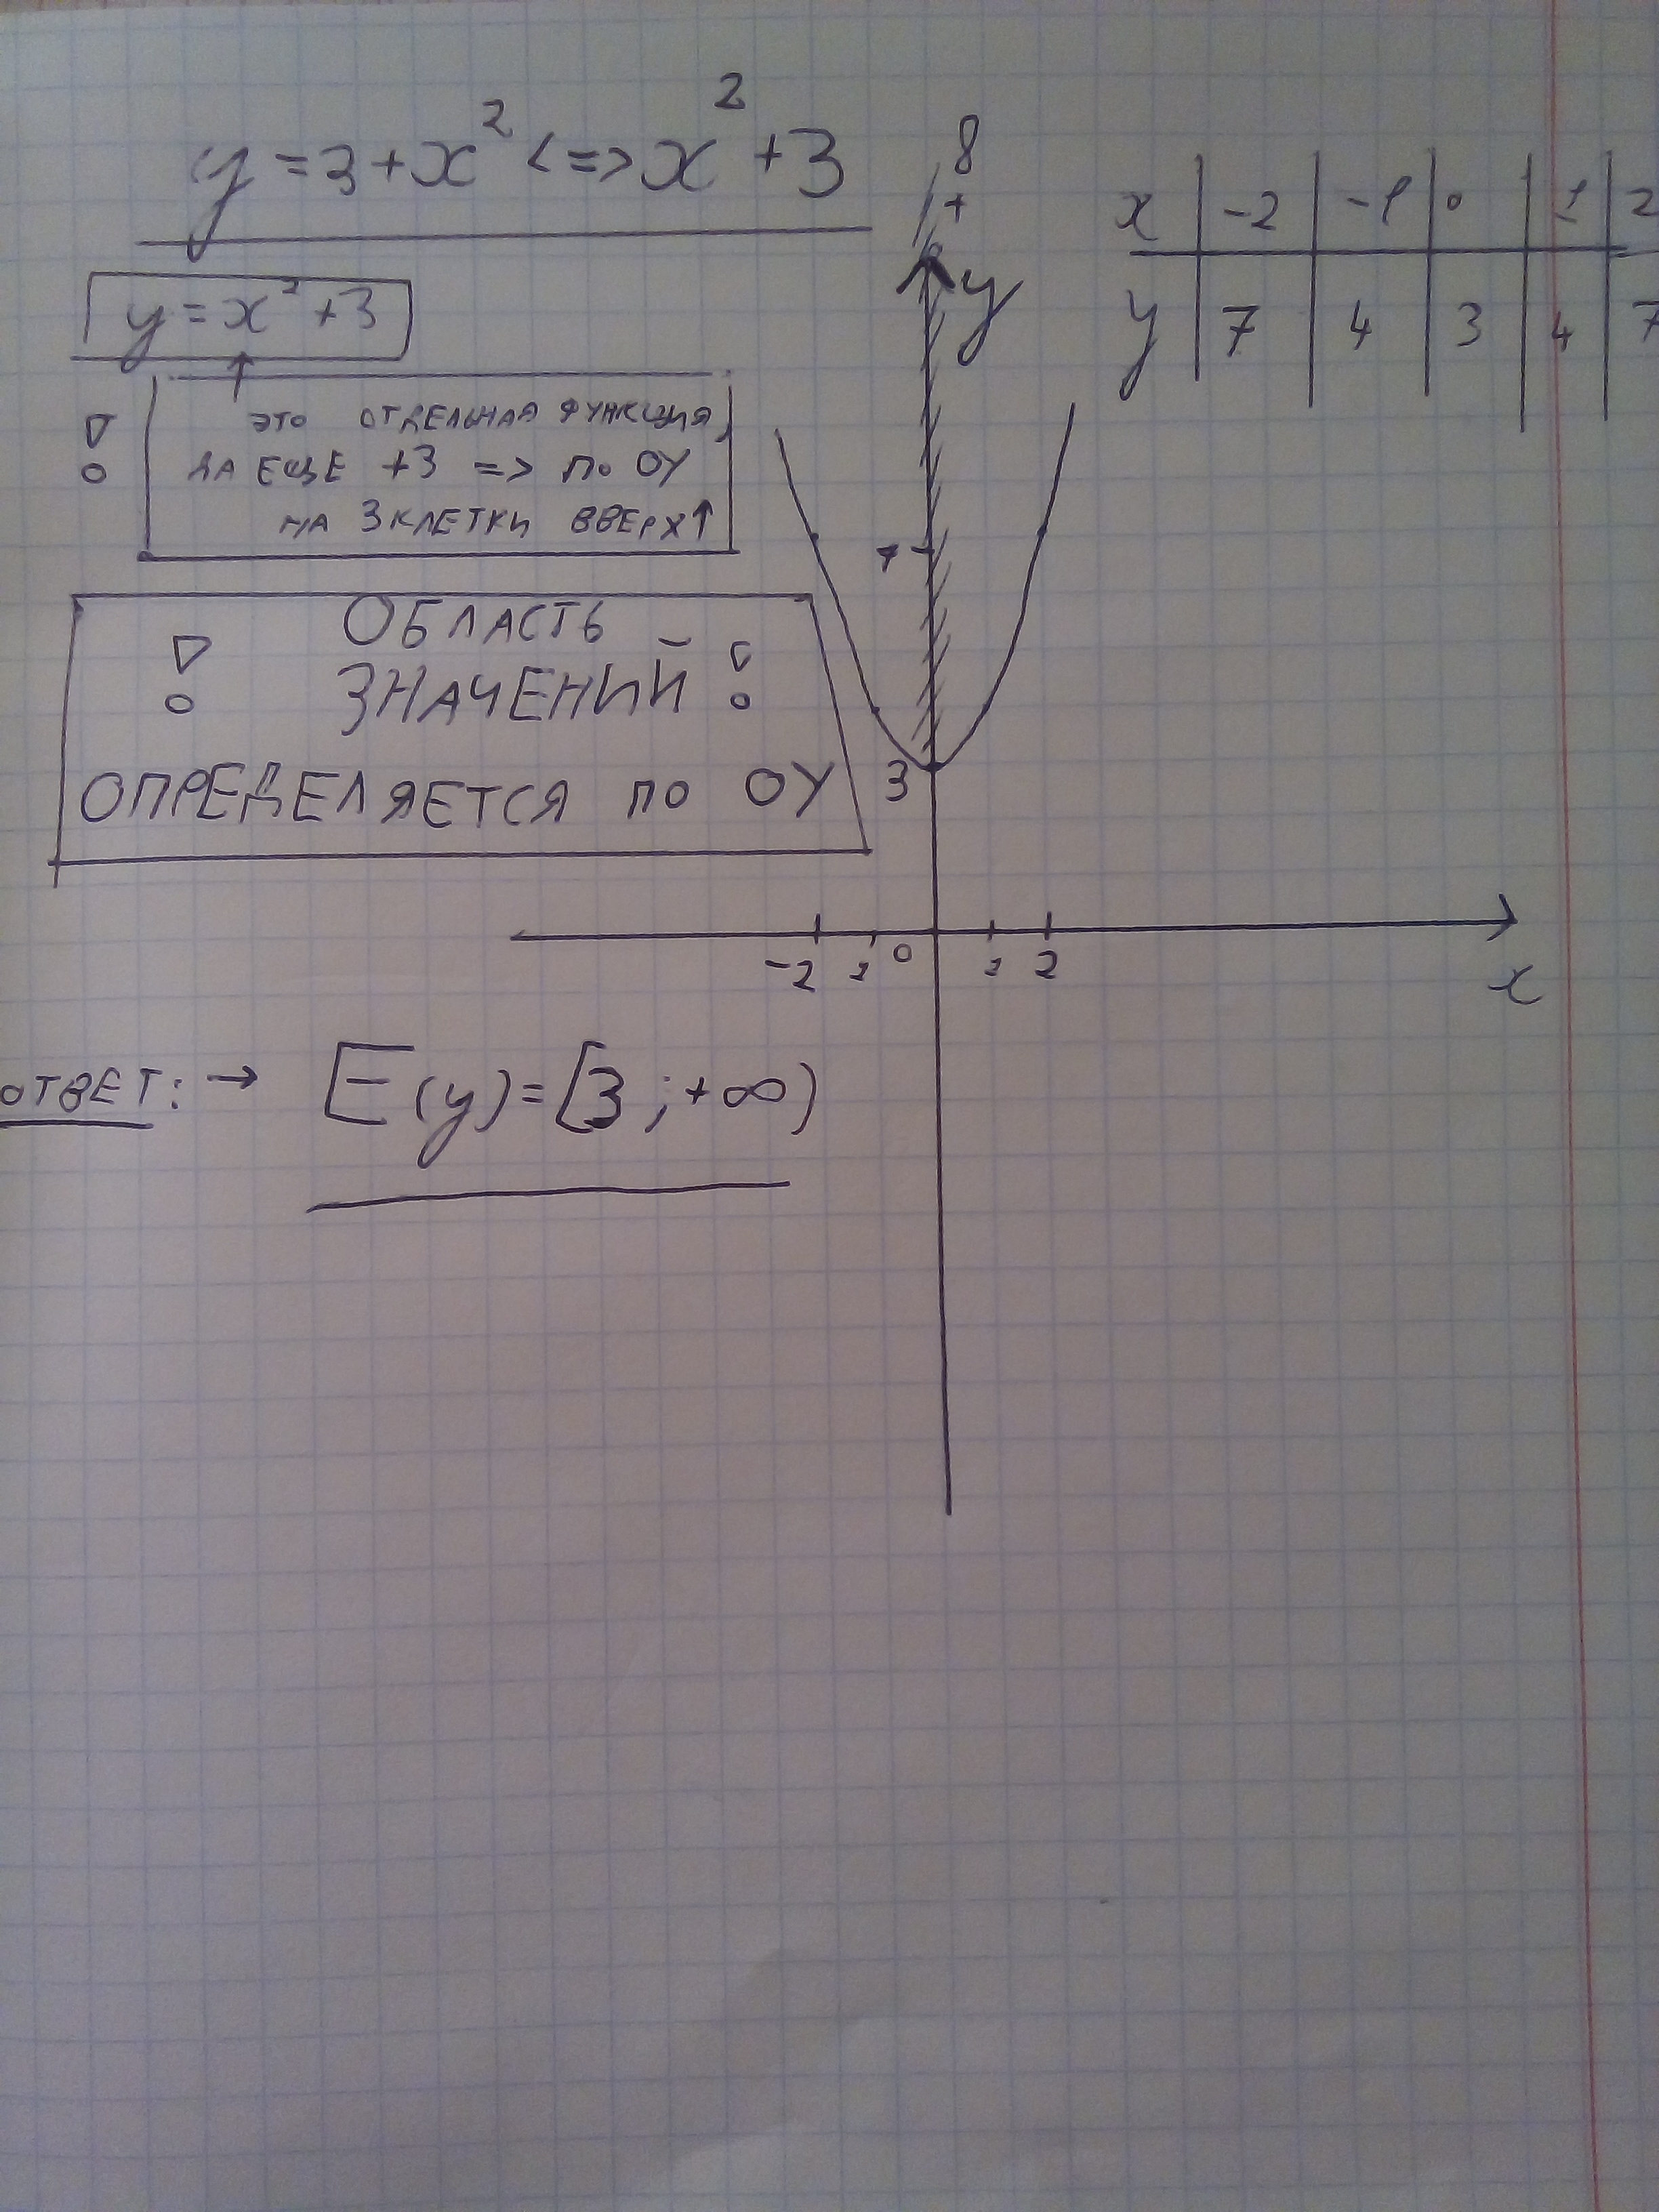 y = 3 + x² <=> x² + 3
y = x² + 3
это отдельная функция,
да еще +3 => по OY
на 3 клетки вверх ↑
! Область !
значений
определяется по OY
x | -2 | -1 | 0 | 1 | 2
y | 7 | 4 | 3 | 4 | 7
+ ∞
y
7
3
-2 1 0 1 2
x
ответ: → E(y) = [3; +∞)